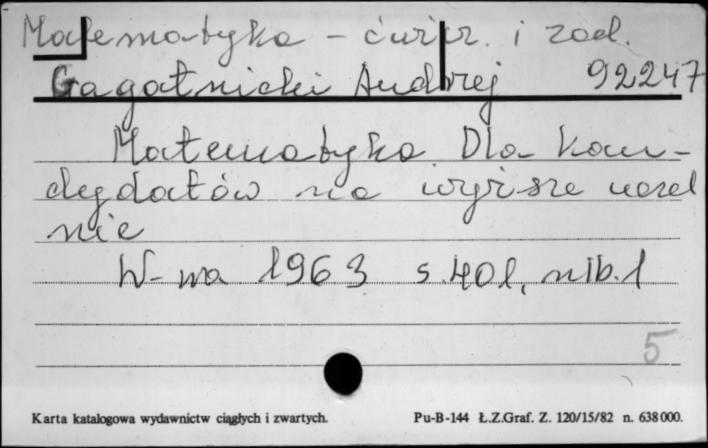 Matematyka - ćwicz. i zad.
Gagatnicki Andrzej 92247
Matematyka. Dla kan-
dydatów na wyższe uczel
nie
W-wa 1963 s. 401, nlb. 1
5
Karta katalogowa wydawnictw ciągłych i zwartych. Pu-B-144 Ł.Z.Graf. Z. 120/15/82 n. 638000.